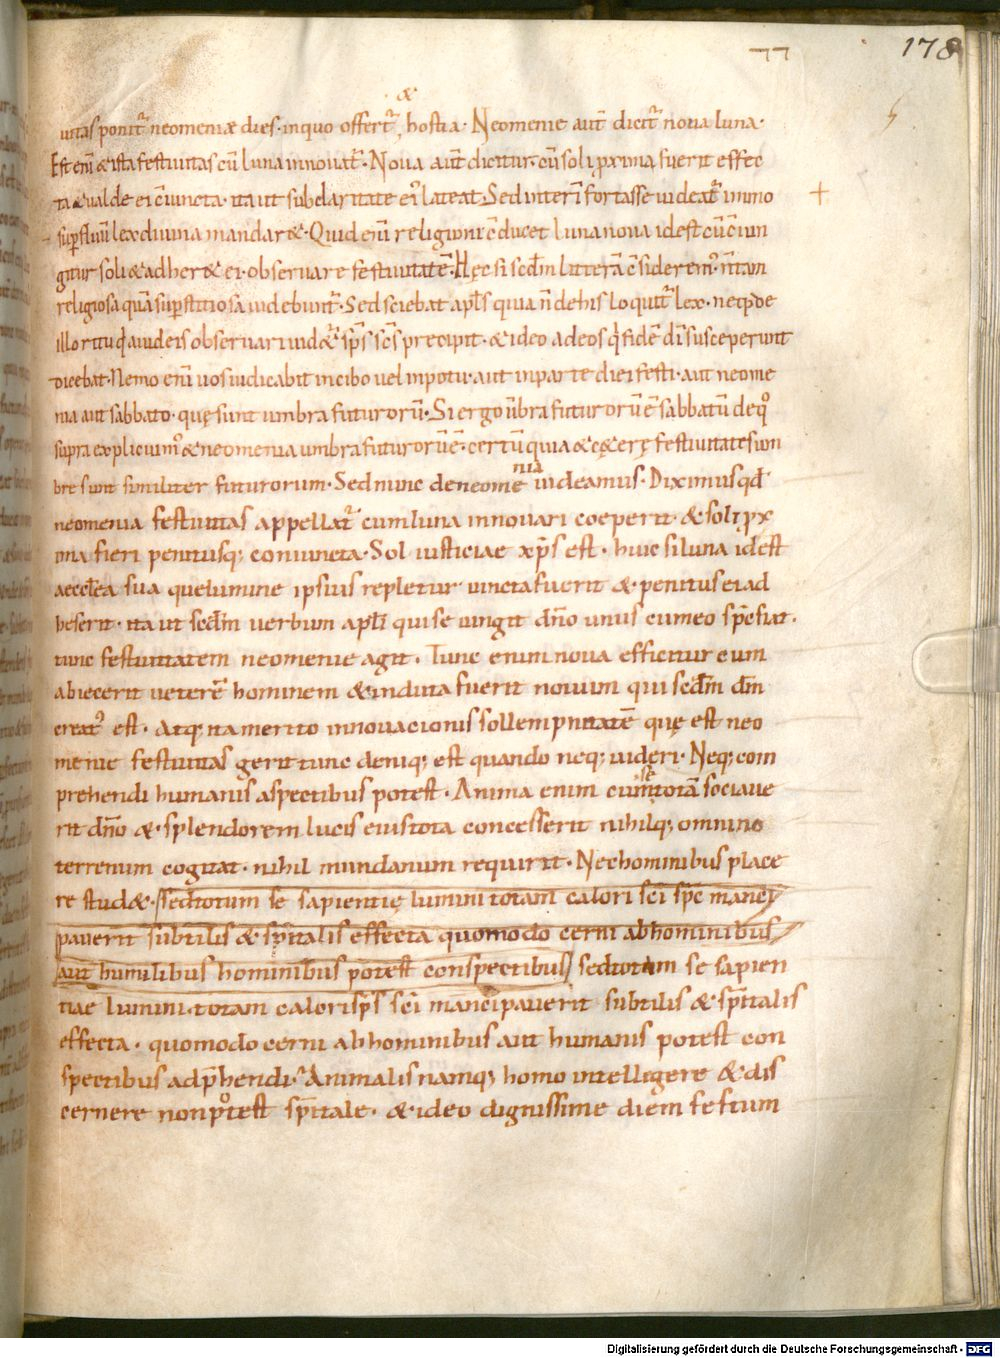 178
&
uitas ponit᷒ neomeniæ dies · in quo offert᷒, hostia · Neomenie aut̅ dicit᷒ noua luna ·
Est eni̅ & ista festiuitas cu̅ luna innouat᷒ · Noua aut̅ dicitur cu̅ soli p̱xima fuerit effec
ta & ualde ei c̅iuncta · ita ut sub claritate ei᷒ lateat · Sed interi̅ fortasse uideat᷒ immo
sup̱fluu̅ lex diuina mandar& · Quid eni̅ religioni c̅ducet luna noua id est cu̅ c̅iun
gitur soli & adher& ei · obseruare festiuitate̅ · Hęc si scd̅m littera̅ c̅siderem᷒ · n̅ tam
religiosa qua̅ sup̱stitiosa uidebunt᷒ · Sed sciebat apl̅s quia n̅ de his loquit᷒ lex · neq; de
illo ritu q̇ iudeis obseruari uid&᷒ sp̅s sc̅s precipit · & ideo ad eos q̇ fide̅ di̅ susceperunt
dicebat · Nemo eni̅ uos iudicabit in cibo uel in potu · aut in parte diei festi · aut neome
nia aut sabbato · quę sunt umbra futuroru̅ · Si ergo u̅bra futuroru̅ e̅ sabbatu̅ de q̊
supra explicuim᷒ & neomenia umbra futuroru̅ e̅ · certu̅ quia & cęterę festiuitates um
bre sunt similiter futurorum · Sed nunc de neome
nia
uideamus · Diximus qd̅
neomenia festiuitas appellat᷒ cum luna innouari coeperit & soli p̱x
ma fieri penitusq; coniuncta · Sol iusticiae xp̅s est · huic si luna id est
aeccl̅ea sua que lumine ipsius repletur uincta fuerit & penitus ei ad
heserit · ita ut scd̅m uerbum apl̅i qui se iungit dn̅o unus cum eo sp̅s fiat ·
tunc festiuitatem neomenie agit · Tunc enim noua efficitur cum
abiecerit uetere̅ hominem & induta fuerit nouum qui scd̅m dm̅
creat᷒ est · Atq; ita merito innouacionis sollempnitate̅ quę est neo
menie festiuitas gerit tunc deniq; est quando neq; uideri · Neq; com
prehendi humanis aspectibus potest · Anima enim cum
se
tota̅ sociaue
rit dn̅o & splendorem lucis eius tota concesserit nihilq; omnino
terrenum cogitat · nihil mundanum requirit · Nec hominibus place
re stud& · sed totum se sapientię lumini totam calori sc̅i sp̅c manci
pauerit subtilis & sp̅italis effecta quomodo cerni ab hominibus
aut humilibus hominibus potest conspectibus sed totam se sapien
tiae lumini · totam calori sp̅s sc̅i mancipauerit subtilis & sp̅italis
effecta · quomodo cerni ab hominibus aut humanis potest con
spectibus adp̅hendi · Animalis namq; homo intelligere & dis
cernere non potest sp̅itale · & ideo dignissime diem festum
Digitalisierung gefördert durch die Deutsche Forschungsgemeinschaft - DFG